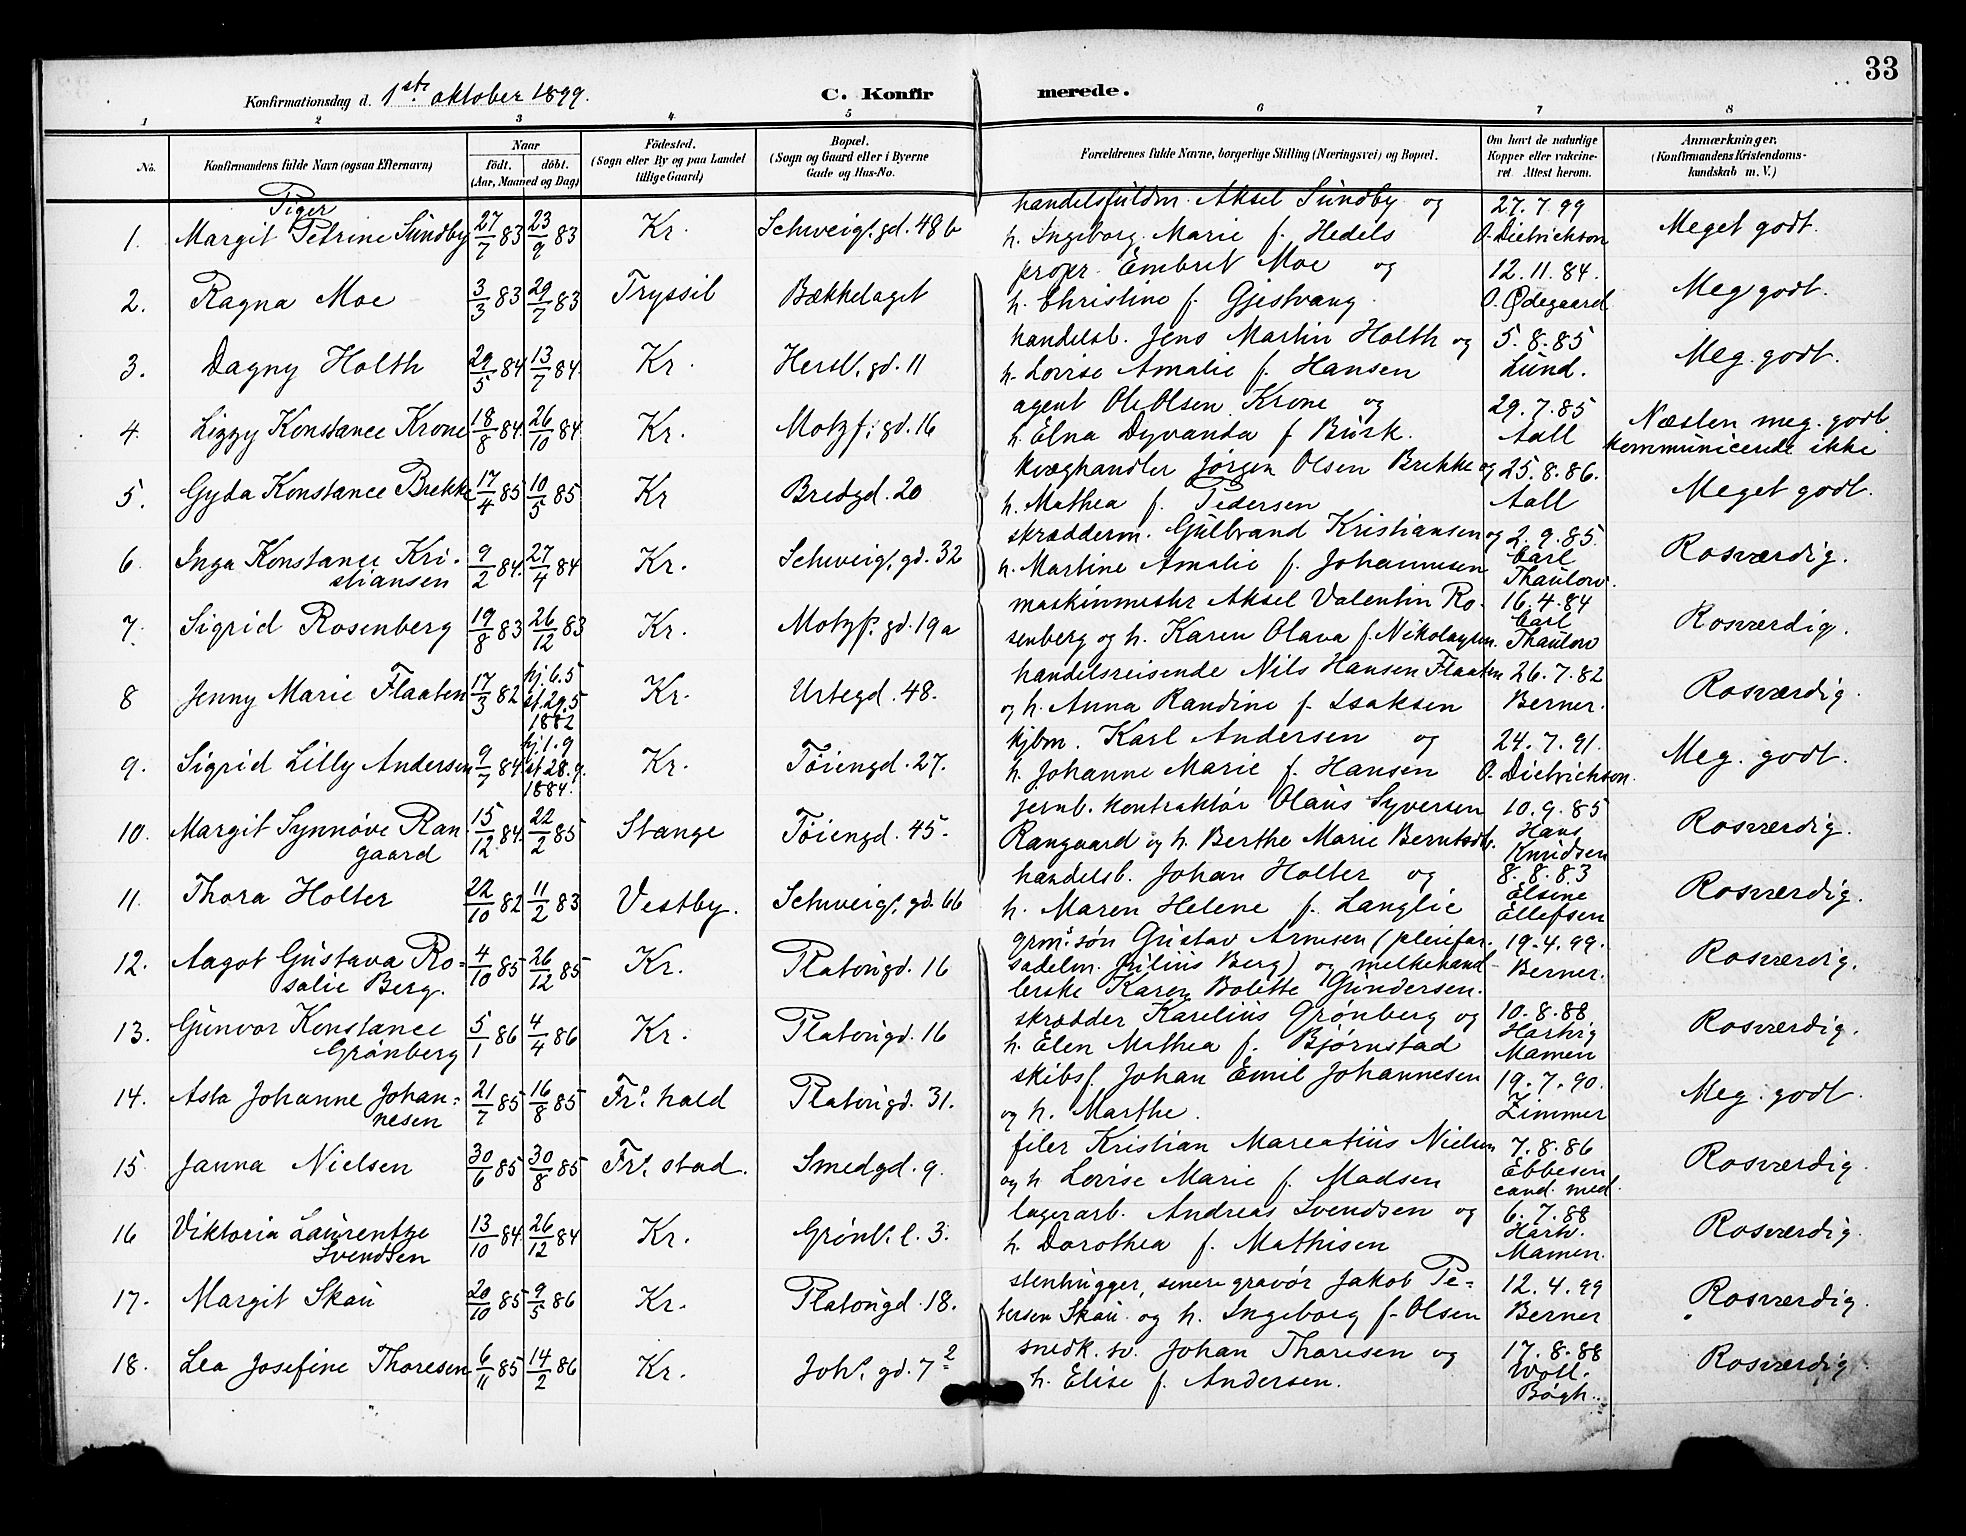 33
Konfirmationsdag d. 1ste oktober 1899. C. Konfirmerede.
1 2 3 4 5 6 7 8
No. Konfirmandens fulde Navn (ogsaa Efternavn) Naar født. døbt. (Aar, Maaned og Dag) Fødested. (Sogn eller By og paa Landet tillige Gaard) Bopæl. (Sogn og Gaard eller i Byerne Gade og Hus-No. Forældrenes fulde Navne, borgerlige Stilling (Næringsvei) og Bopæl. Om havt de naturlige Kopper eller vakcineret. Attest herom. Anmærkninger. (Konfirmandens Kristendomskundskab m. V.)
Piger
1. Margit Petrine Sundby 27/7 83 23/9 83 Kr. Schweigs. gd. 48b handelsfuldm. Aksel Sundby og h. Ingeborg Marie f. Hedels 27.7.99 O. Dietrichson Meget godt.
2. Ragna Moe 3/3 83 29/7 83 Tryssil Bækkelaget propr. Embret Moe og h. Christine f. Gjestvang. 12.11.84. O. Ødegaard Meg. godt.
3. Dagny Holth 29/5 84 13/7 84. Kr. Hersl. gd. 11 handelsb. Jens Martin Holth og h. Lovise Amalie f. Hansen 5.8.85 Lund. Meg. godt.
4. Lizzy Konstance Krone 18/8 84. 26/10 84. Kr. Motzf. gd. 16 agent Ole Olsen Krone og h. Elna Dyvanda f. Burk. 29.7.85 Aall Næsten meg. godt kommunicerede ikke
5. Gyda Konstance Brekke 17/4 85 10/5 85 Kr Bredgd. 20 kvæghandler Jørgen Olsen Brekke og h. Mathea f. Pedersen 25.8.86. Aall Meget godt.
6. Inga Konstance Kristiansen 9/2 84. 27/4 84 Kr. Schweigs. gd. 32 skrædderm. Gulbrand Kristiansen og h. Martine Amalie f. Johannesen 2.9.85. Carl Thaulow. Rosværdig.
7. Sigrid Rosenberg 19/8 83 26/12 83 Kr. Motzfs. gd. 19a maskinmester Aksel Valentin Rosenberg og h. Karen Olava f. Nikolaysen. 16.4.84 Carl Thaulow Rosværdig.
8 Jenny Marie Flaaten 17/3 82 hj. 6.5 st. 29.5 1882 Kr. Urtegd. 48. handelsreisende Nils Hansen Flaaten og h. Anna Randine f. Isaksen 26.7.82 Berner. Rosværdig.
9. Sigrid Lilly Andersen 9/7 84. hj. 1.9 st 28.9. 1884. Kr. Tøiengd. 27. kjbm. Karl Andersen og h. Johanne Marie f. Hansen 24.7.91. O. Dietrichson. Meg. godt.
10. Margit Synnøve Rangaard 15/12 84. 22/2 85 Stange Tøiengd. 45. jernb. kontraktør Olaus Syversen Rangaard og h. Berthe Marie Berntsdt. 10.9.85 Hans Knudsen Rosværdig.
11. Thora Holter 22/10 82 11/2 83 Vestby. Schweigs. gd. 66 handelsb. Johan Holter og h. Maren Helene f. Langlie 8.8.83 Elsine Ellefsen Rosværdig.
12. Aagot Gustava Rosalie Berg. 4/10 85 26/12 85 Kr. Platousgd. 16 grms. søn Gustav Arnesen (pleiefar. sadelm. Julius Berg) og melkehandlerske Karen Bolette Gundersen. 19.4.99. Berner. Rosværdig.
13. Gunvor Konstance Grønberg 5/1 86 4/4 86 Kr. Platousgd. 16 skrædder Karelius Grønberg og h. Elen Mathea f. Bjørnstad 10.8.88 Hartvig Mamen Rosværdig.
14. Asta Johanne Johannesen 21/7 85 16/8 85 Frs. hald Platousgd. 31. skibsf. Johan Emil Johannesen og h. Marthe. 19.7.90. Zimmer Meg. godt.
15 Janna Nielsen 30/6 85 30/8 85 Frs. stad. Smedgd. 9. filer Kristian Mareatius Nielsen og h Lovise Marie f. Madsen 7.8.86 Ebbesen cand. med. Rosværdig.
16 Viktoria Laurentze Svendsen 13/10 84. 26/12 84 Kr. Grønls. l. 3. lagerarb. Andreas Svendsen og h. Dorothea f. Mathisen 6.7.88 Hartv. Mamen. Rosværdig.
17. Margit Skau 20/10 85 9/5 86 Kr. Platousgd. 18. stenhugger, senere gravør Jakob Petersen Skau og h. Ingeborg f. Olsen 12.4.99 Berner Rosværdig.
18. Lea Josefine Thoresen 6/11 85 14/2 86 Kr. Johs. gd. 7² snedk. sv. Johan Thoresen og h. Elise f. Andersen. 17.8.88 Woll. Bøgh. Rosværdig.